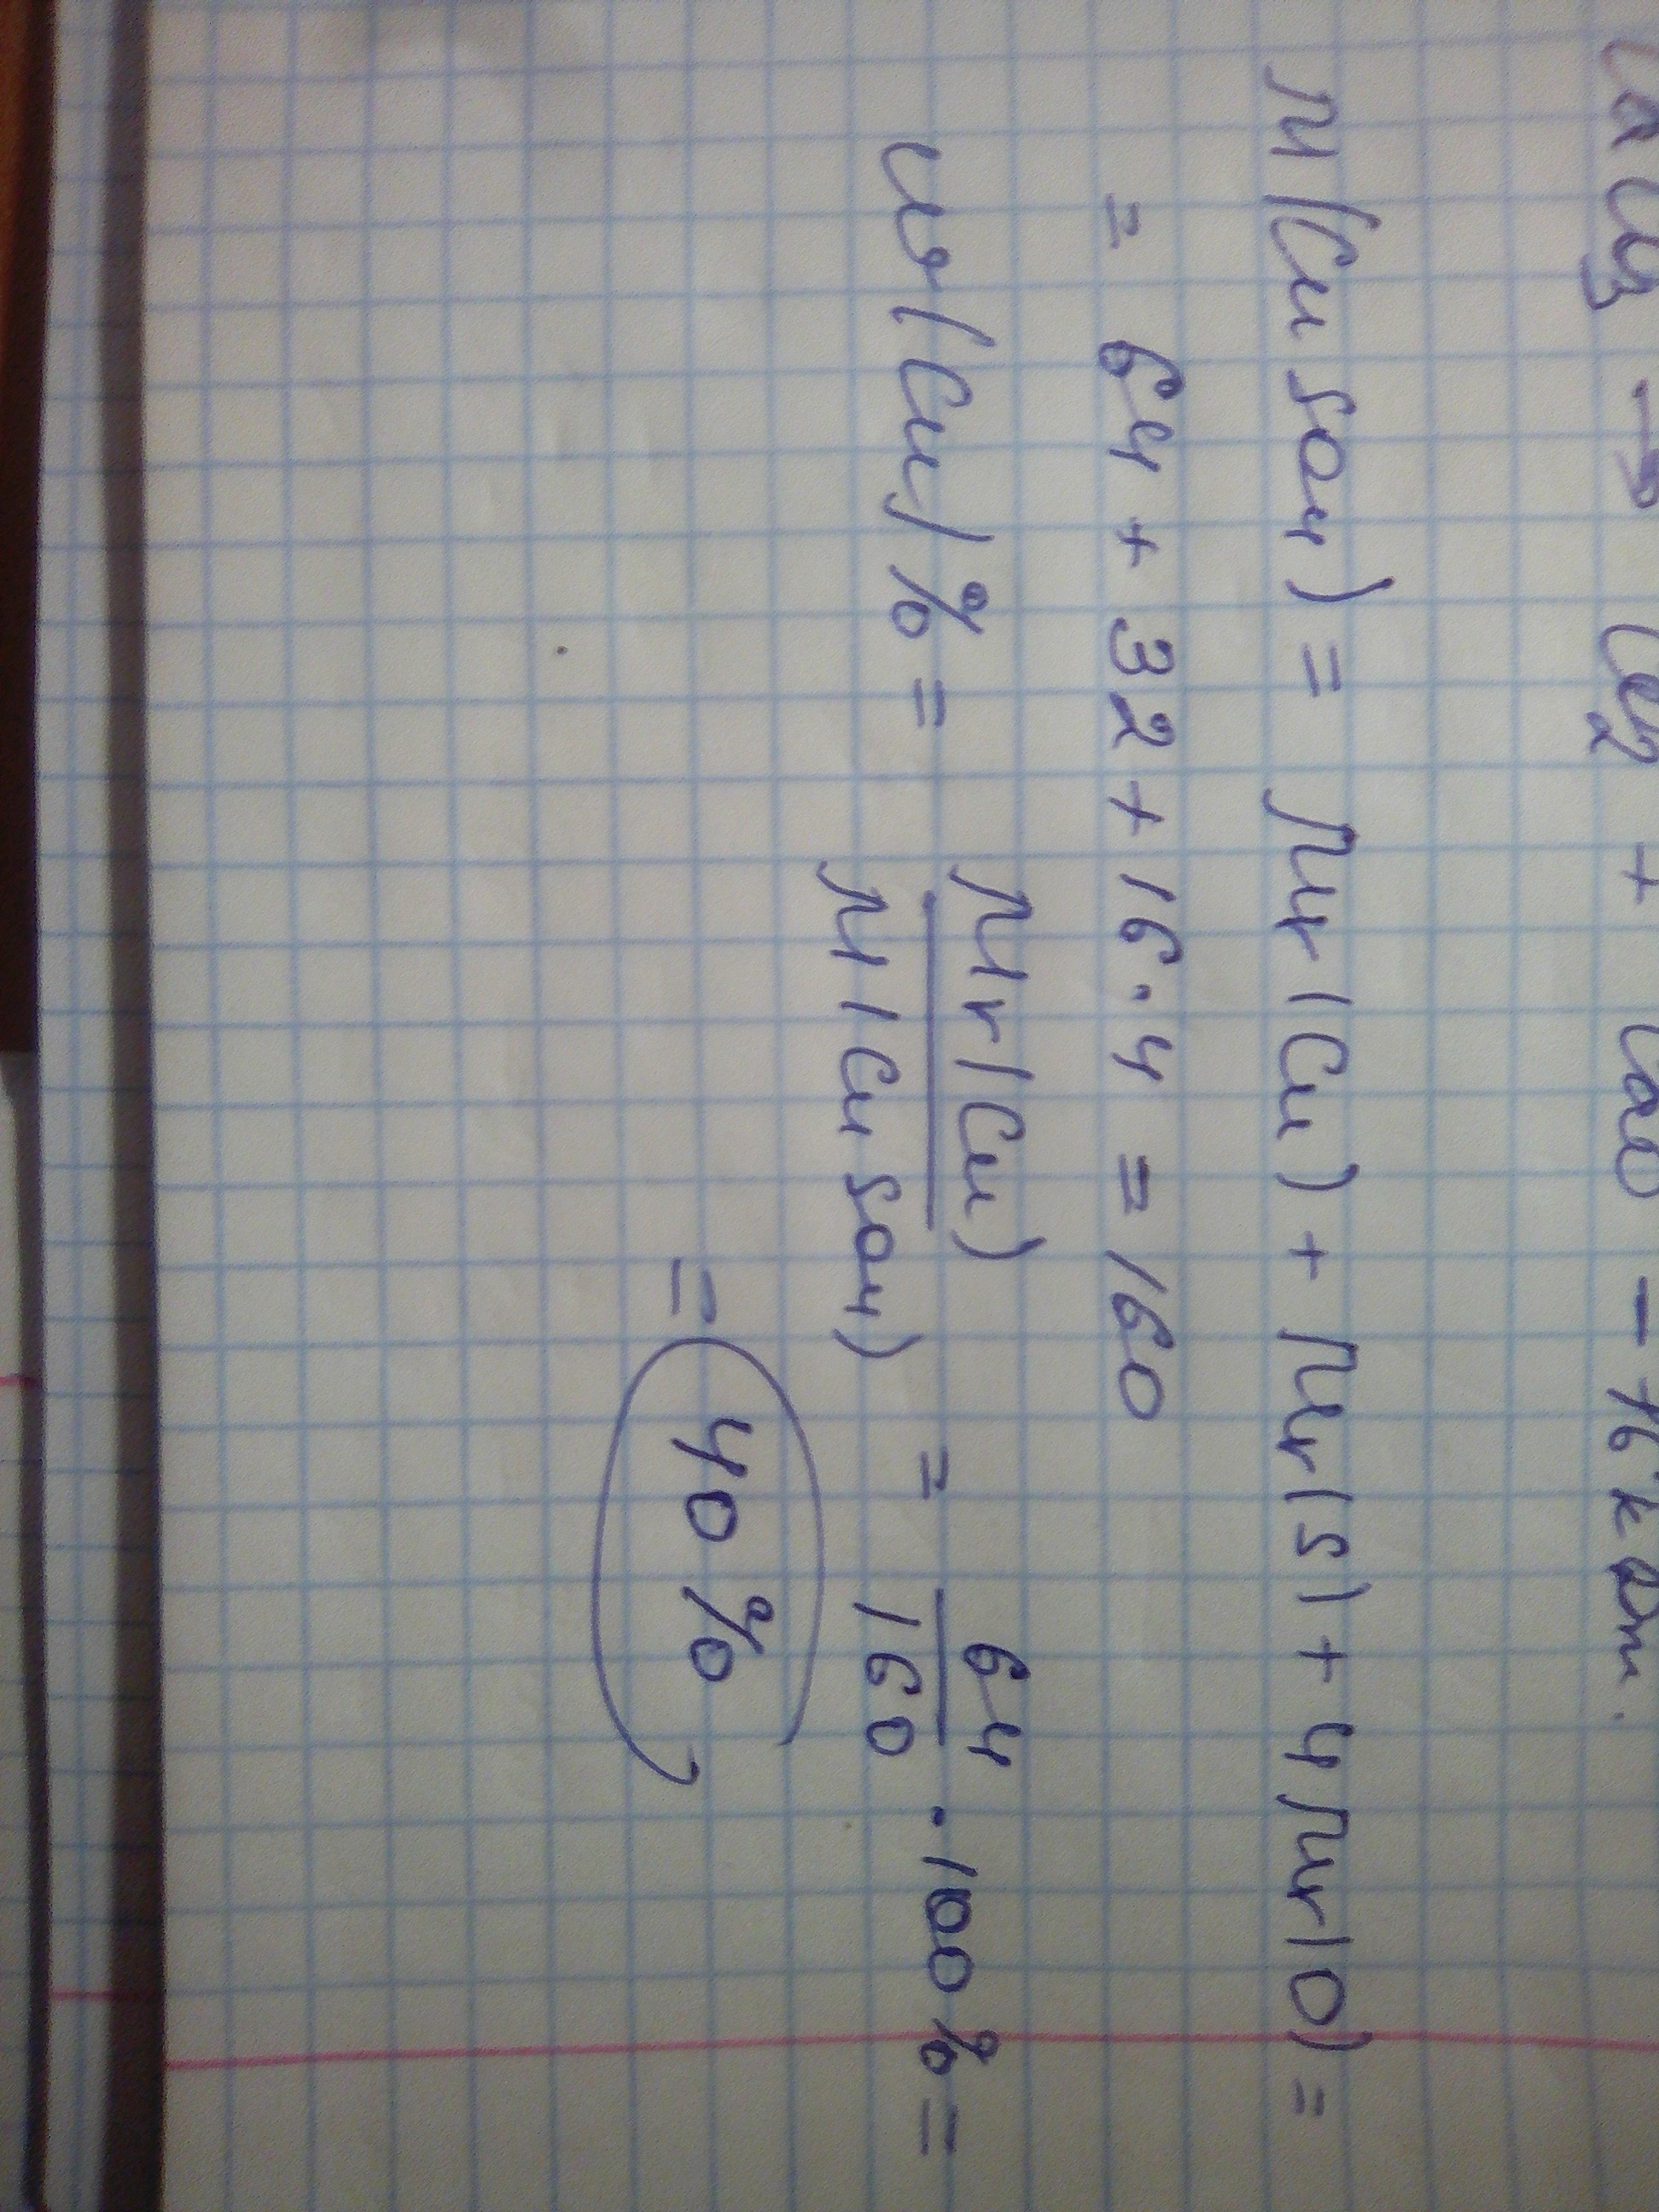 → CO₂ + CaO - 76 кДж.
M(CuSO₄) = Mr(Cu) + Mr(S) + 4Mr(O) =
= 64 + 32 + 16 · 4 = 160
ω(Cu)% = Mr(Cu) / M(CuSO₄) = 64 / 160 · 100% =
= 40%